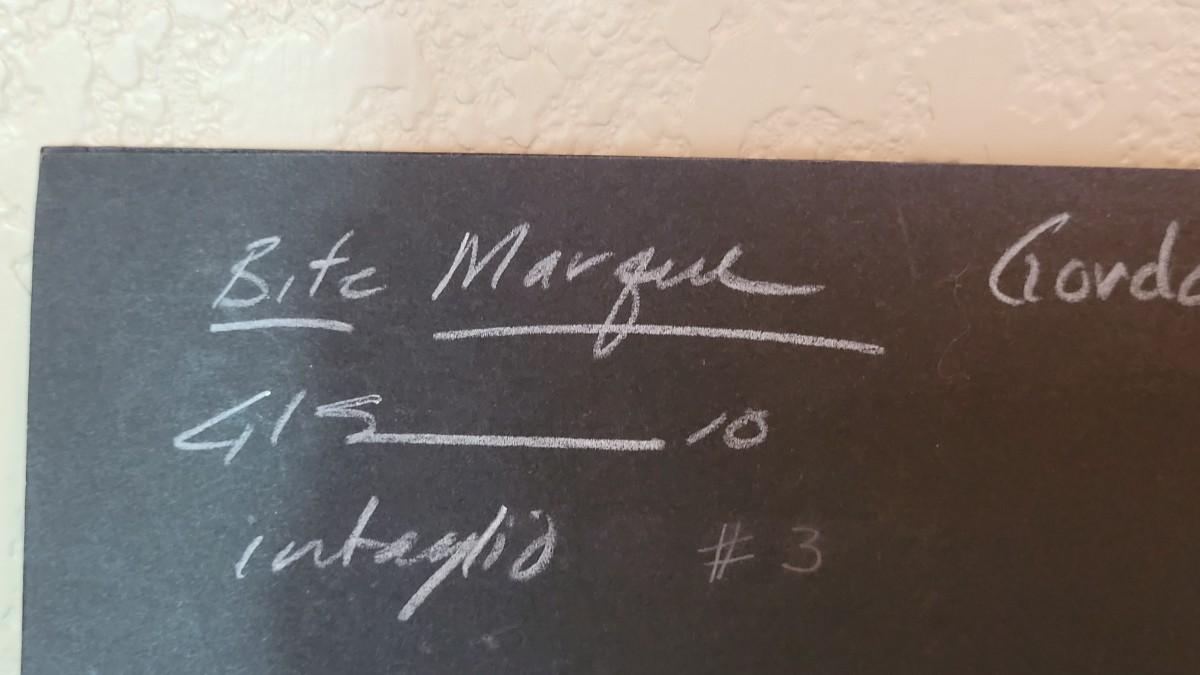 Bite Marque Gordo
415 10
intaglio # 3